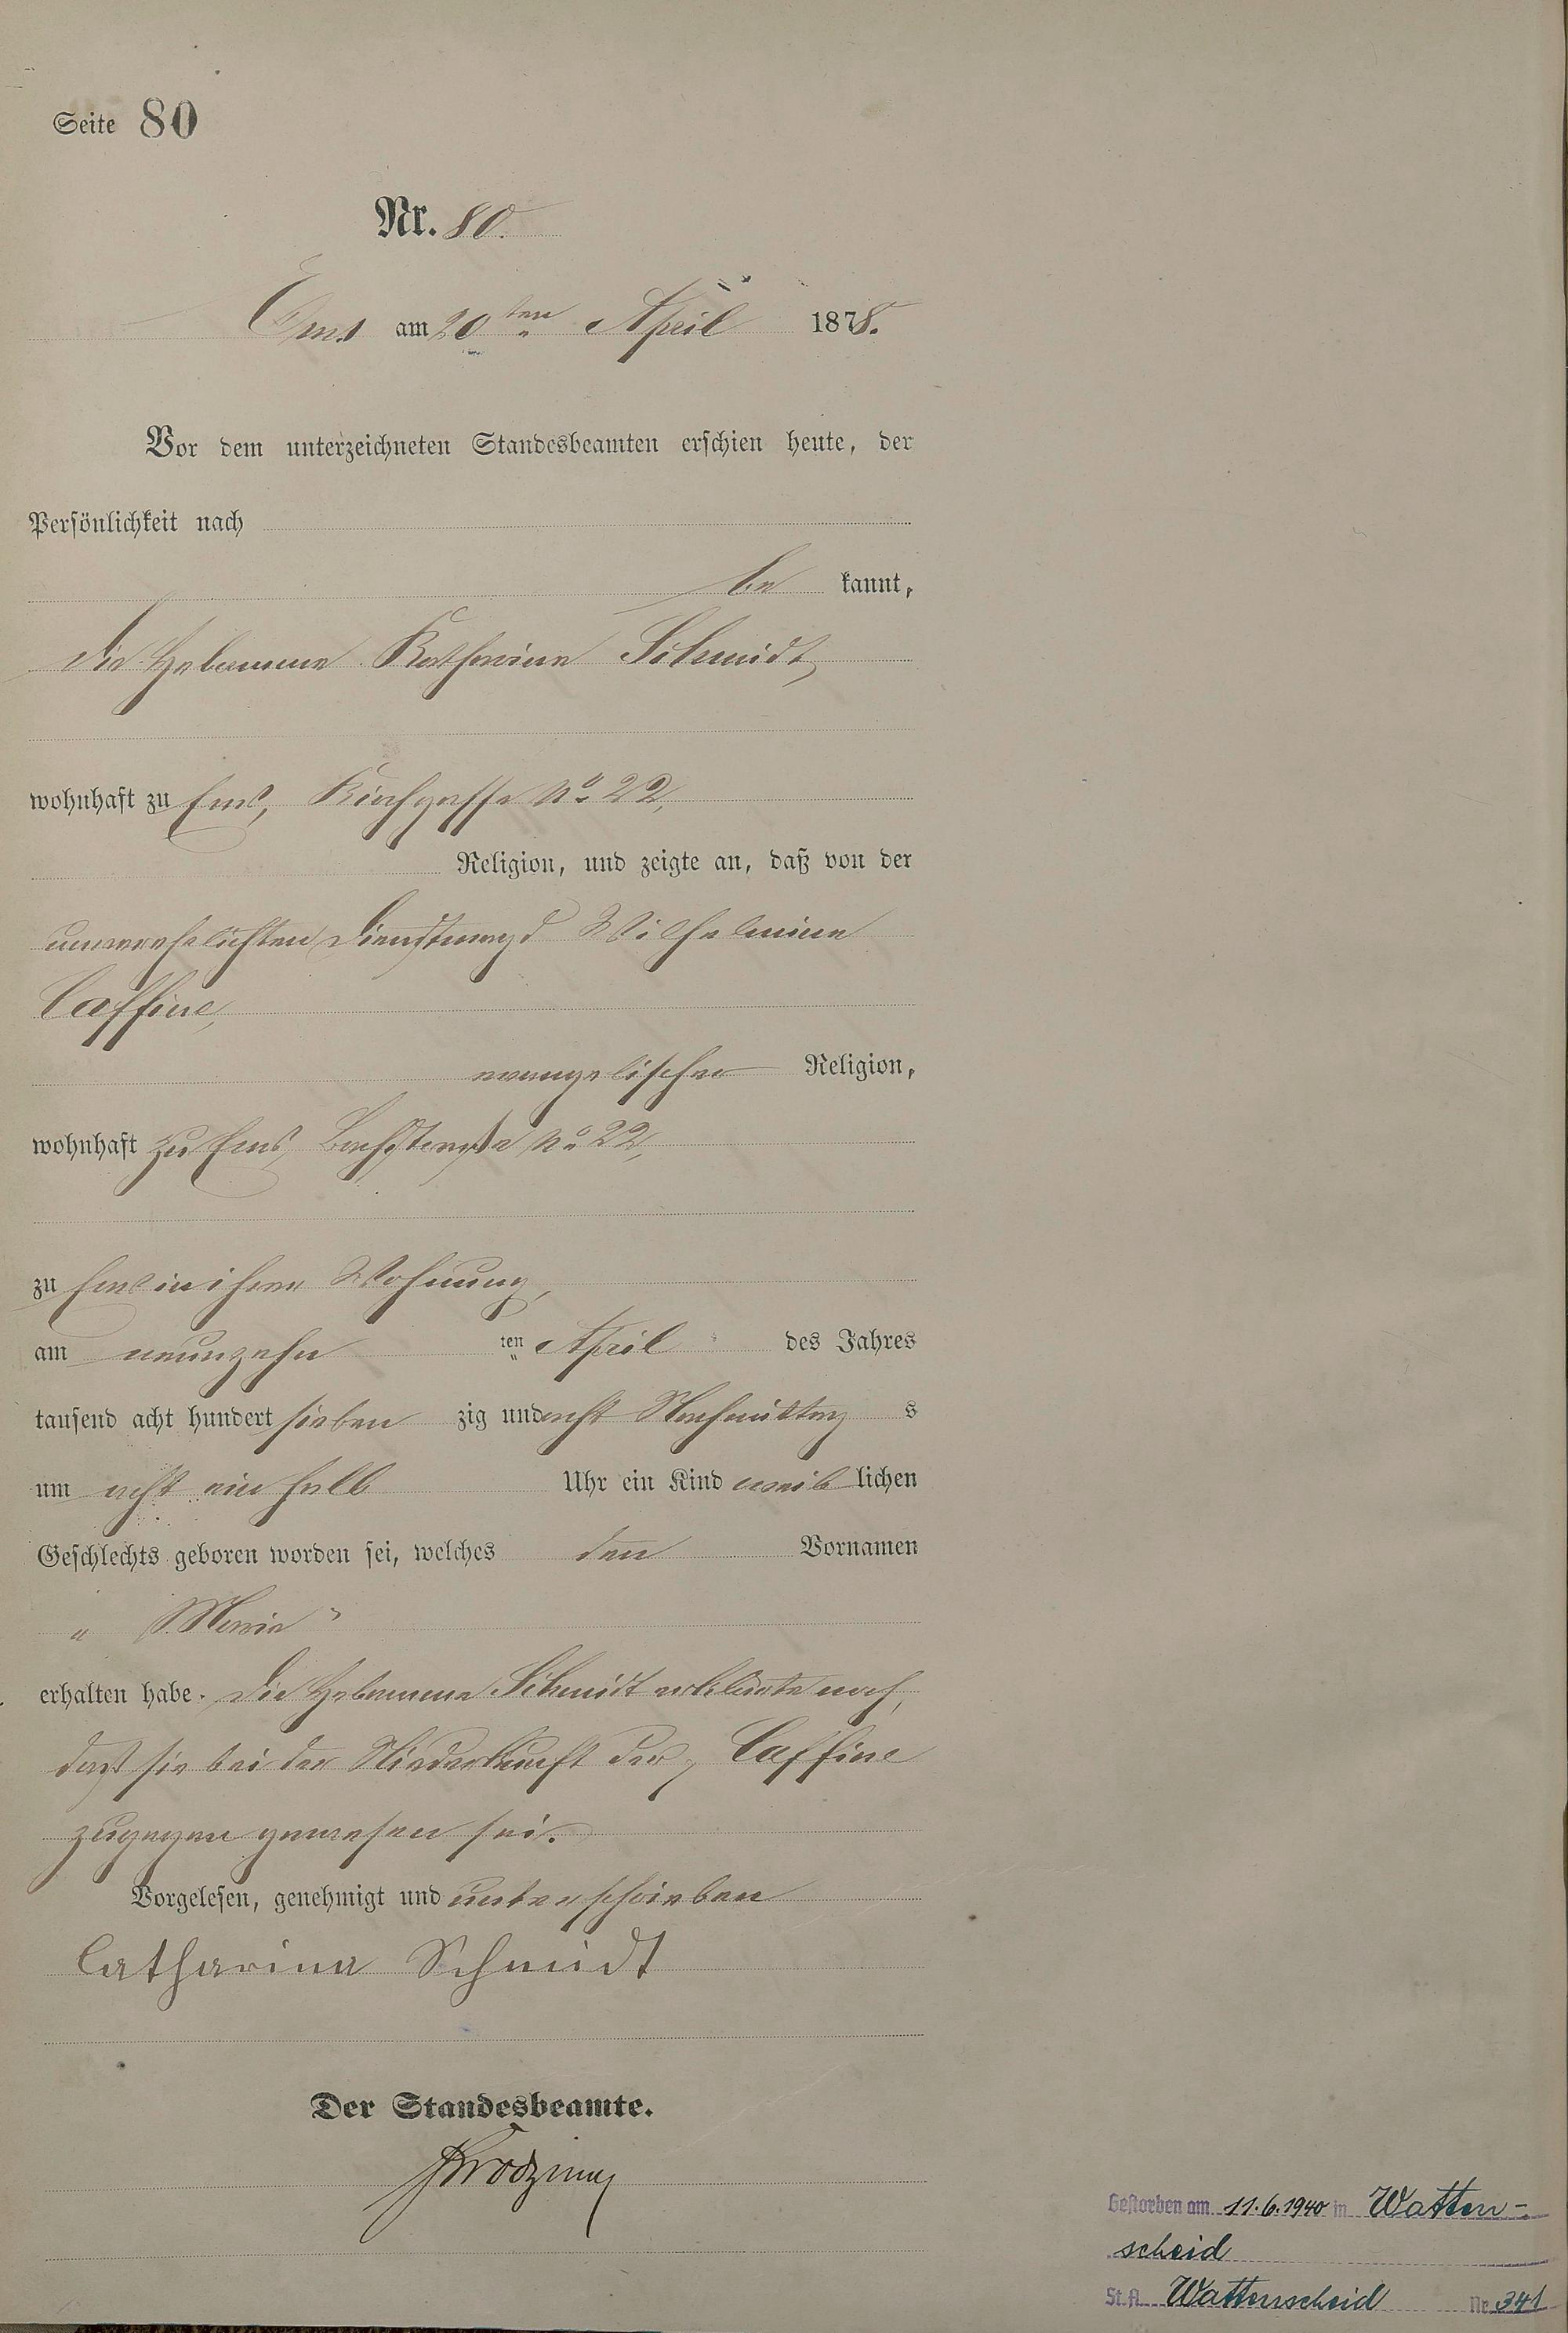 Seite 80
Nr. 80.
Ems am 20ten April 1878.
Vor dem unterzeichneten Standesbeamten erschien heute, der
Persönlichkeit nach
be kannt,
die Hebamme Katharina Schmidt,
wohnhaft zu Ems, Kirchgasse No 22,
Religion, und zeigte an, daß von der
unverehelichten Dienstmagd Wilhelmine
Caffine,
evangelischer Religion,
wohnhaft zu Ems, Bachstraße No 22,
zu Ems in ihrer Wohnung,
am neunzehn ten April des Jahres
tausend acht hundert sieben zig und acht Nachmittag s
um acht ein halb Uhr ein Kind weib lichen
Geschlechts geboren worden sei, welches den Vornamen
„ Maria "
erhalten habe. Die Hebamme Schmidt erklärte noch,
daß sie bei der Niederkunft der Caffine
zugegen gewesen sei.
Vorgelesen, genehmigt und unterschrieben
Catharina Schmidt
Der Standesbeamte.
Gestorben am 11.6.1940 in Watten-
scheid
St.A. Wattenscheid Nr. 341